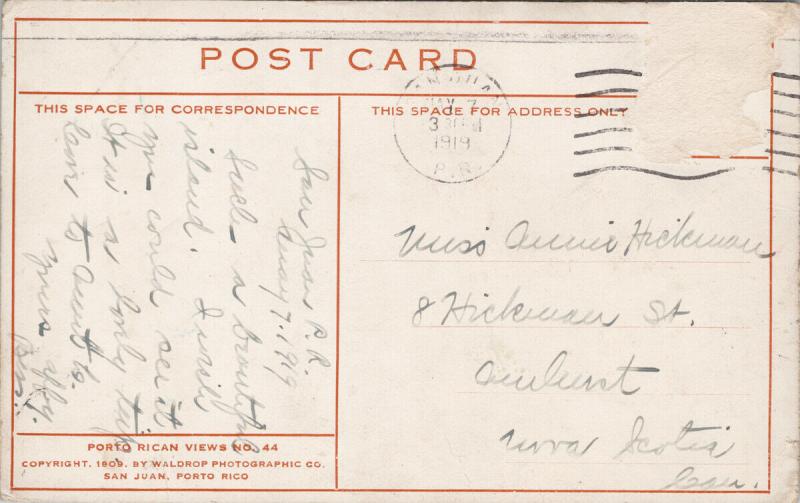 POST CARD
SAN JUAN
MAY 7
3 30 PM
1919
P.R.
THIS SPACE FOR CORRESPONDENCE
THIS SPACE FOR ADDRESS ONLY
San Juan P.R.
May 7-1919
Such a beautiful
island. I wish
you could see it
It is a lovely trip.
Love to
Yours affy
Miss Annie Hickman
8 Hickman St.
Amherst
Nova Scotia
Can.
PORTO RICAN VIEWS NO. 44
COPYRIGHT, 1909, BY WALDROP PHOTOGRAPHIC CO.
SAN JUAN, PORTO RICO